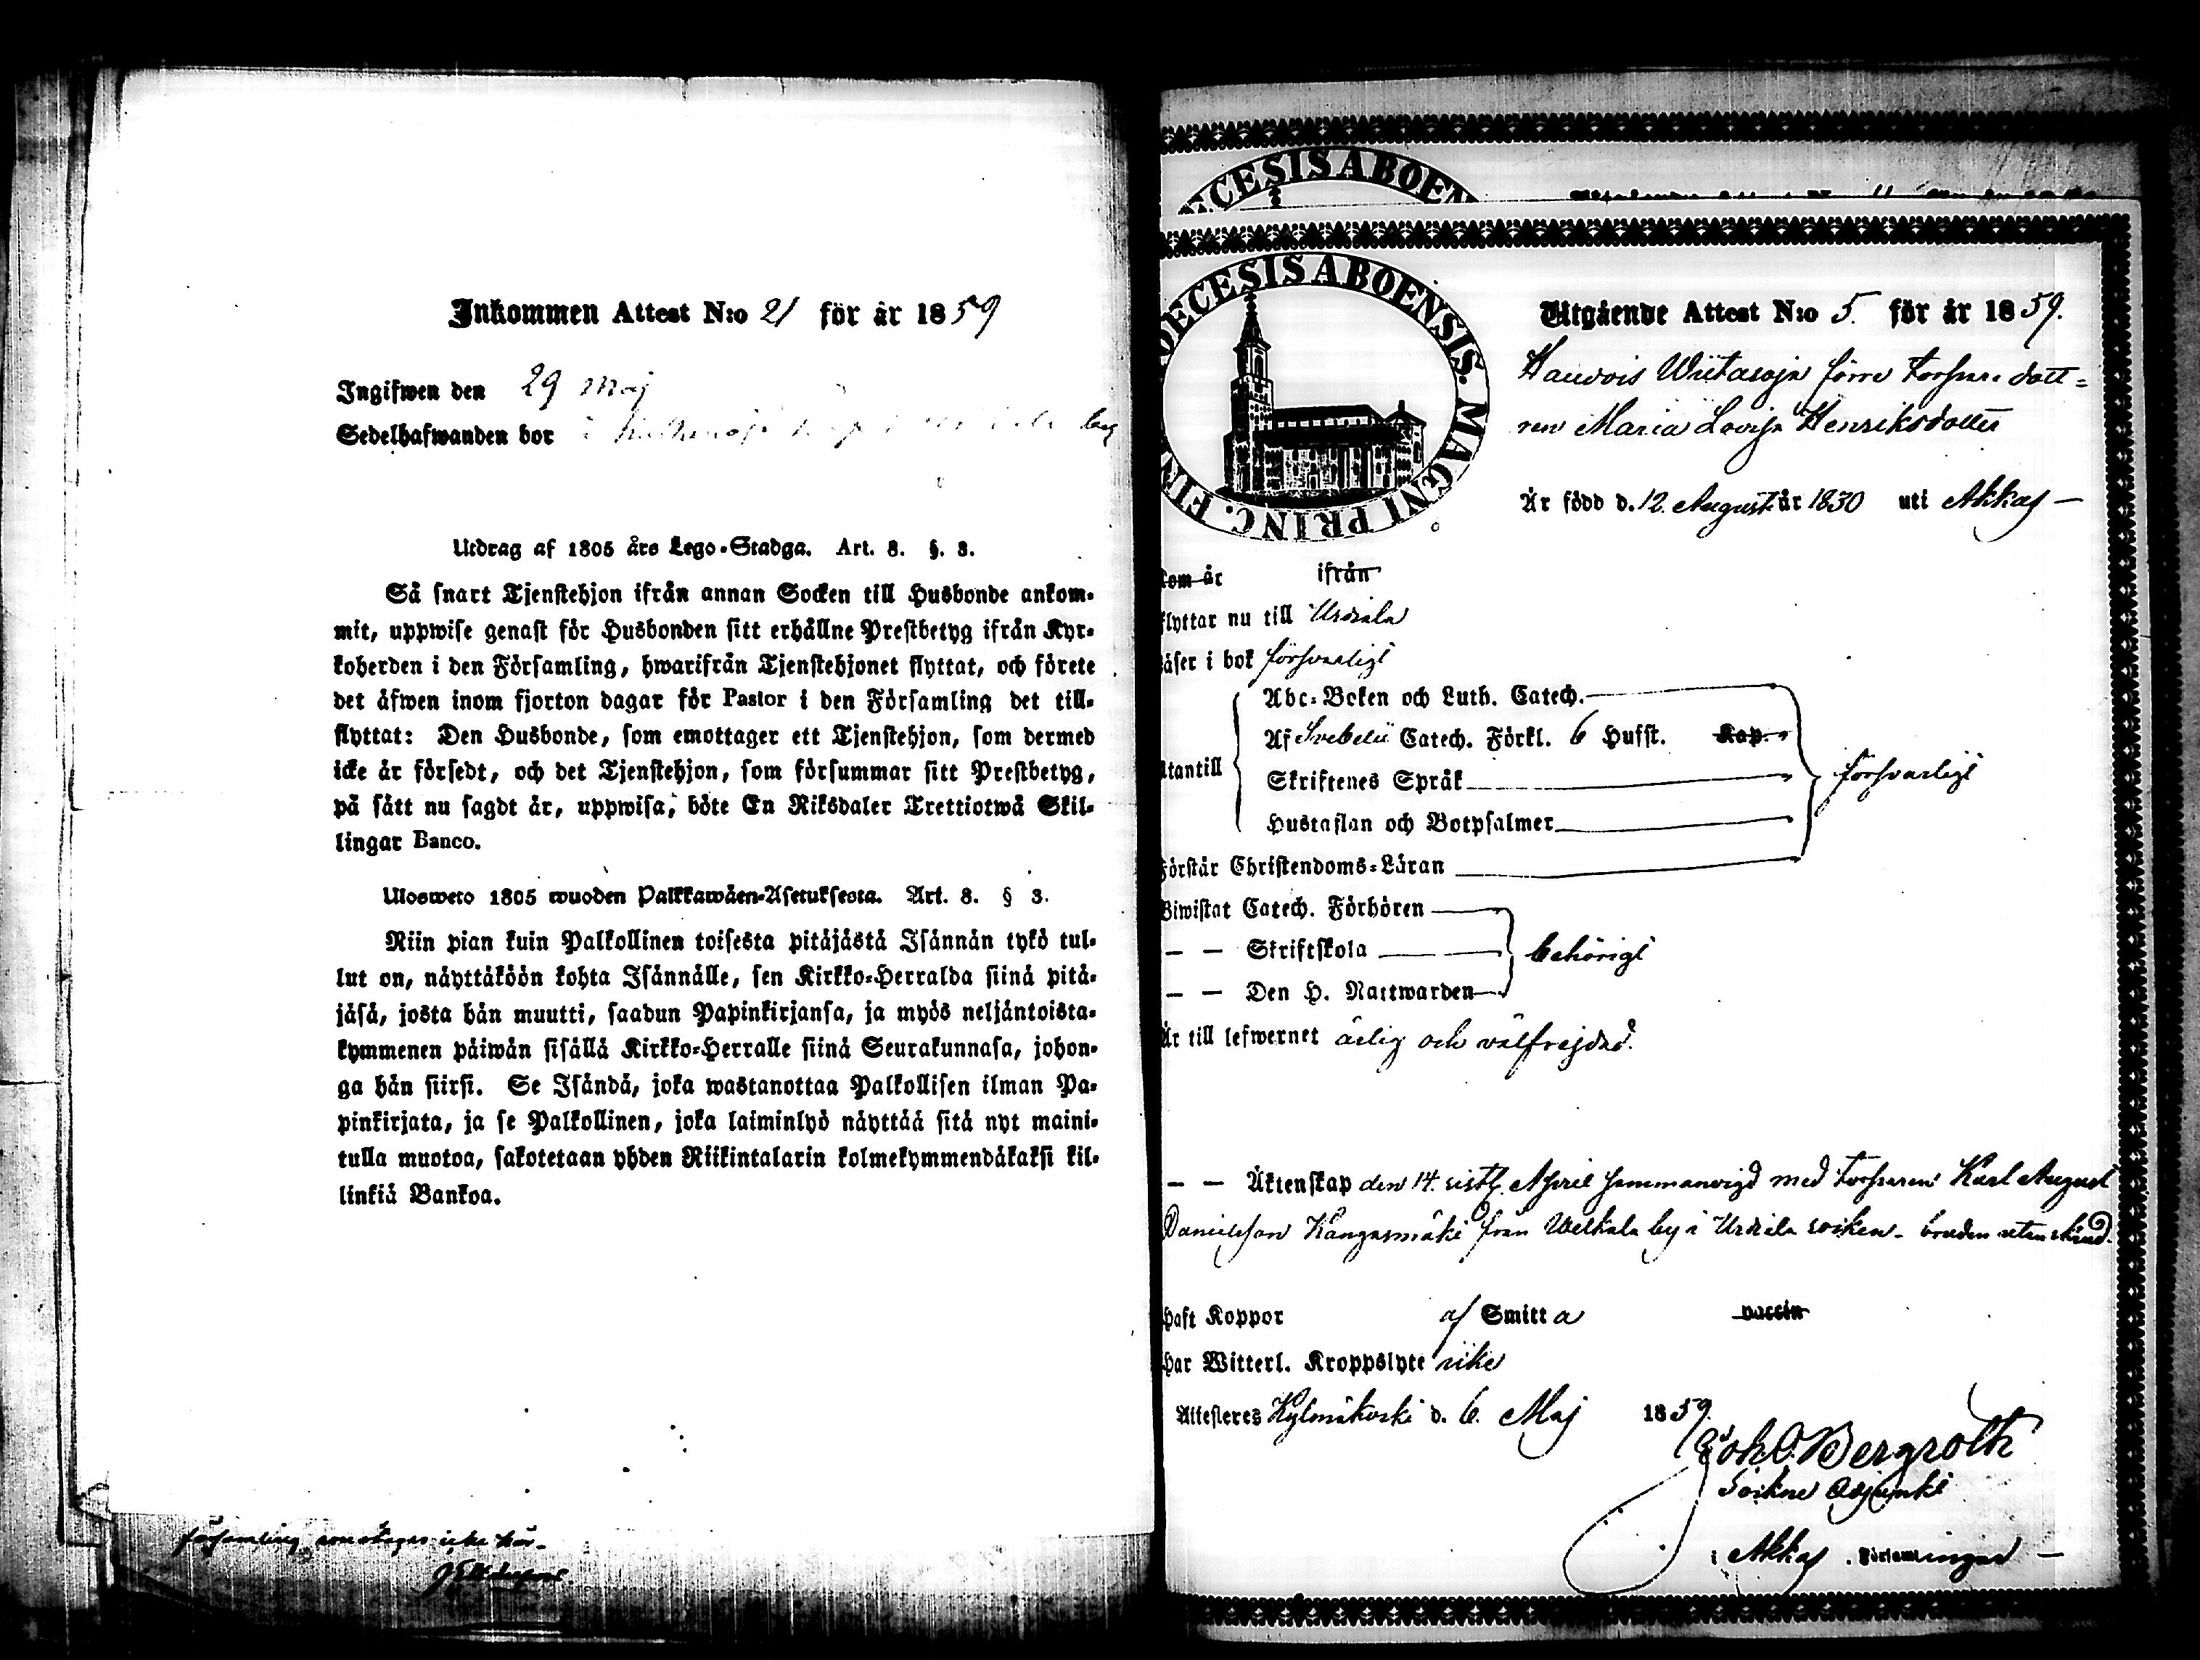 Inkommen Attest N:o 21 för år 1859
Ingifwen den 29 Maj
Sedelhafwanden bor i by
Utdrag af 1805 års Lego-Stadga. Art. 8. §. 3.
Så snart Tjenstehjon ifrån annan Socken till Husbonde ankom-
mit, uppwise genast för Husbonden sitt erhållne Prestbetyg ifrån Kyr-
koherden i den Församling, hwarifrån Tjenstehjonet flyttat, och förete
det äfwen inom fjorton dagar för Pastor i den Församling det till-
flyttat: Den Husbonde, som emottager ett Tjenstehjon, som dermed
icke är försedt, och det Tjenstehjon, som försummar sitt Prestbetyg,
på sätt nu sagdt är, uppwisa, böte En Riksdaler Trettiotwå Skil-
lingar Banco.
Ulosweto 1805 wuoden Palkkawäen-Asetuksesta. Art. 8. § 3.
Niin pian kuin Palkollinen toisesta pitäjästä Isännän tykö tul-
lut on, näyttäköön kohta Isännälle, sen Kirkko-Herralda siinä pitä-
jäsä, josta hän muutti, saadun Papinkirjansa, ja myös neljäntoista-
kymmenen päiwän sisällä Kirkko-Herralle siinä Seurakunnasa, johon-
ga hän siirsi. Se Isändä, joka wastanottaa Palkollisen ilman Pa-
pinkirjata, ja se Palkollinen, joka laiminlyö näyttää sitä nyt maini-
tulla muotoa, sakotetaan yhden Riikintalarin kolmekymmendäkaksi kil-
linkiä Bankoa.
församling
ŒCESIS ABOEN
DECESIS ABOENSIS. MAGNI PRINC. FIN
Utgående Attest N:o 5. för år 1859.
Wiitasoja förre Torpare dott=
ren Maria Lovisa Henriksdotter
Är född d. 12. August. år 1830 uti Akkas —
kom år ifrån
flyttar nu till Urdiala
läser i bok försvarligt
Abc-Boken och Luth. Catech.
Af Svebelii Catech. Förkl. 6 Hufst. Kap.
utantill
Skriftenes Språk
försvarligt
Hustaflan och Botpsalmer
Förstår Christendoms-Läran
Biwistat Catech. Förhören
— — Skriftskola
behörigt
— — Den H. Nattwarden
Är till lefwernet ärlig och välfrejdad.
— — Äktenskap den 14. sistl. April sammanvigd med Torparen Karl August
Danielsson Kangasmäki från Welkala by i Urdiala socken - bruden utan
Haft Koppor af Smitta vaccin
Har Witterl. Kroppslyte icke
Attesteres Kylmäkoski d. 6. Maj 1859.
Joh. O. Bergroth
Sockne Adjunkt
i Akkas Församlingar —